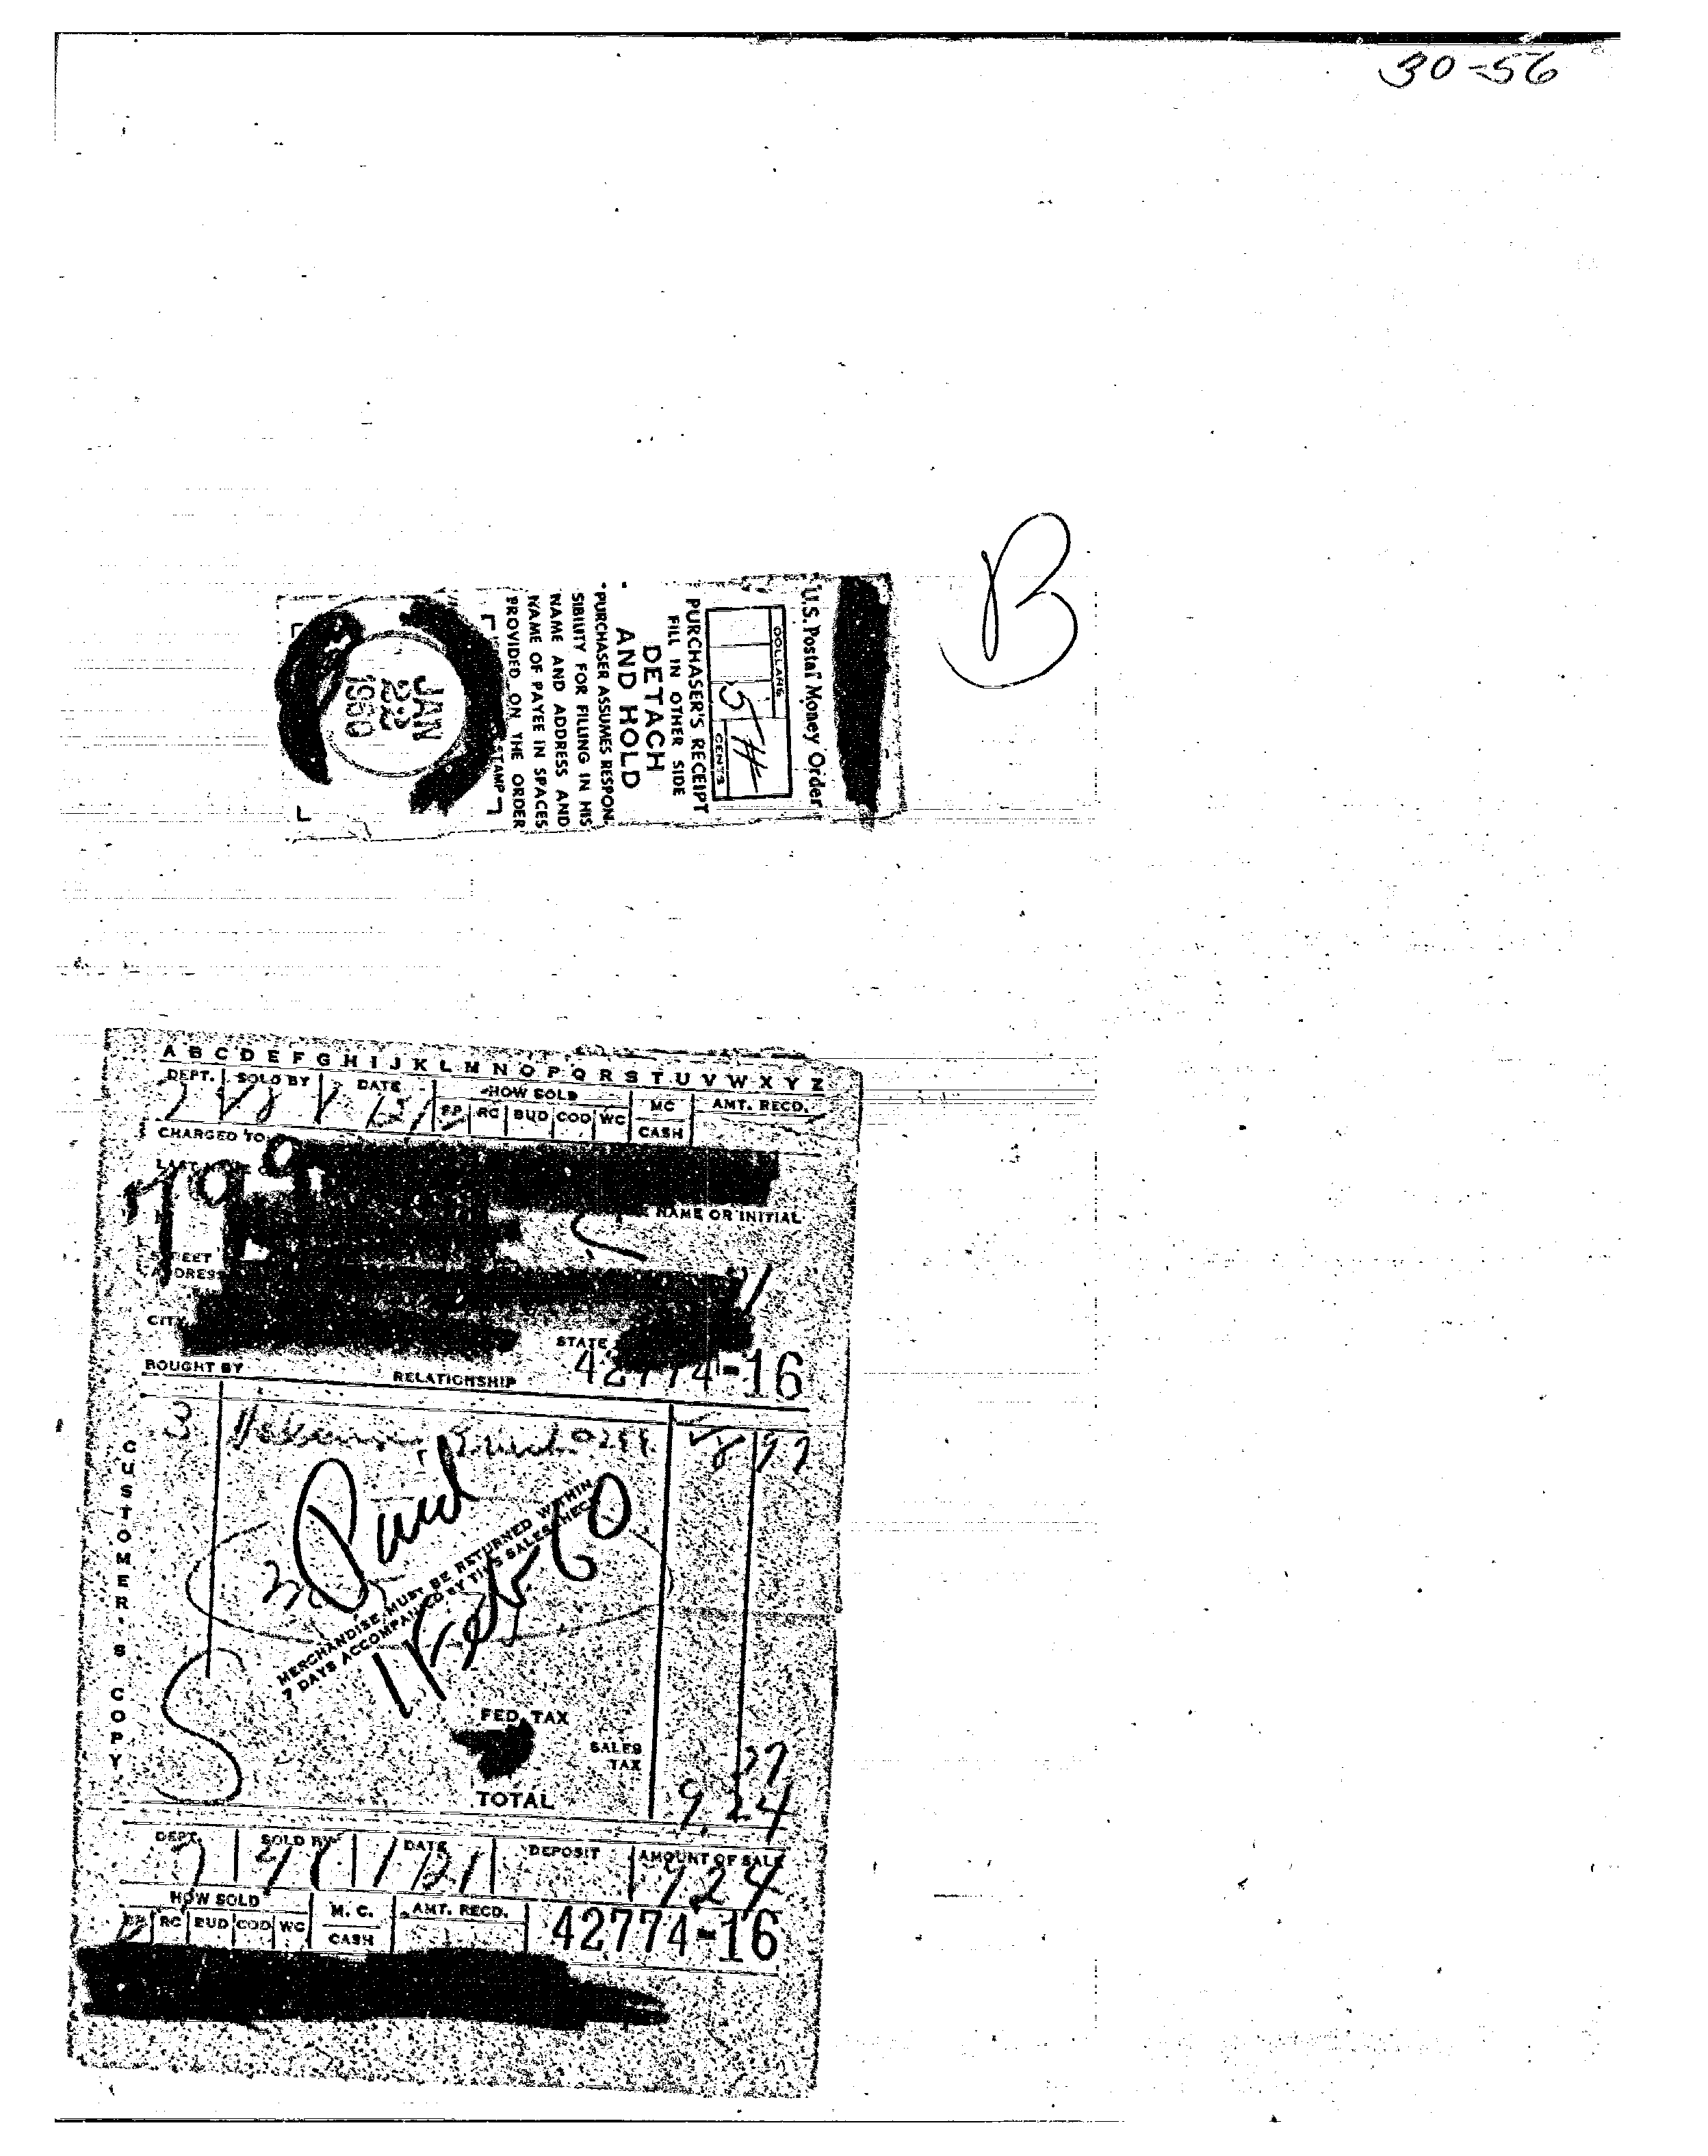 30-56
B
U.S. Postal Money Order
DOLLARS
CENTS
PURCHASER'S RECEIPT
FILL IN OTHER SIDE
DETACH
AND HOLD
PURCHASER ASSUMES RESPON-
SIBILITY FOR FILLING IN HIS
NAME AND ADDRESS AND
NAME OF PAYEE IN SPACES
PROVIDED ON THE ORDER
STAMP
JAN
22
1960
A B C D E F G H I J K L M N O P Q R S T U V W X Y Z
DEPT. SOLD BY DATE HOW SOLD MC AMT. RECD.
RC BUD COD WC CASH
CHARGED TO
NAME OR INITIAL
STREET
ADDRESS
CITY STATE
42774-16
BOUGHT BY RELATIONSHIP
3 0299 8 97
Paid
MERCHANDISE MUST BE RETURNED WITHIN
7 DAYS ACCOMPANIED BY THIS SALES CHECK
1 Feb 60
CUSTOMER'S COPY
FED. TAX
SALES
TAX 27
TOTAL 9.24
DEPT. SOLD BY DATE DEPOSIT AMOUNT OF SALE
7 1/21 9.24
HOW SOLD M. C. AMT. RECD. 42774-16
RC BUD COD WC CASH